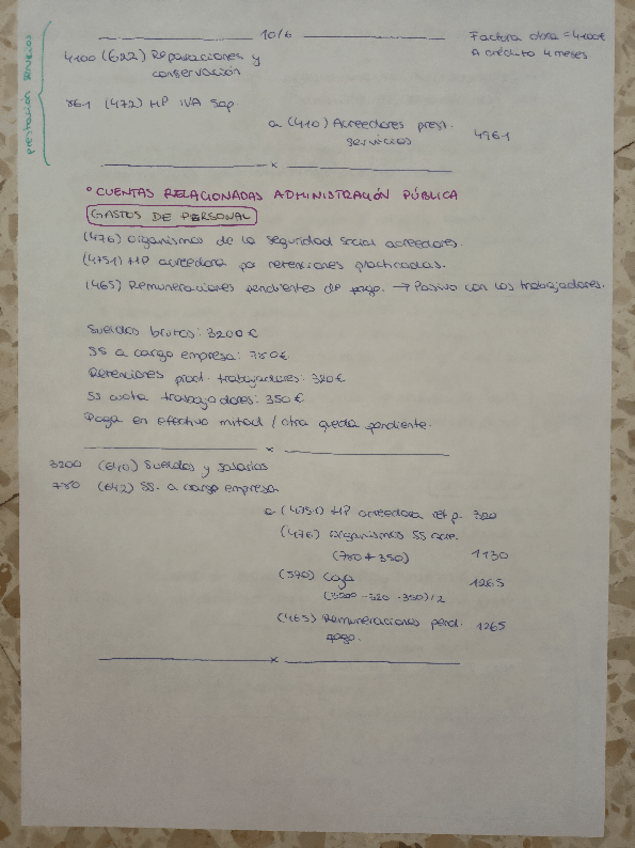 prestación servicios
10/6
Factura obra = 4100€
A crédito 4 meses
4100 (622) Reparaciones y
conservación
861 (472) HP IVA Sop.
a (410) Acreedores prest.
servicios 4961
x
° CUENTAS RELACIONADAS ADMINISTRACIÓN PÚBLICA
GASTOS DE PERSONAL
(476) Organismos de la seguridad social acreedores.
(4751) HP acreedora por retenciones practicadas.
(465) Remuneraciones pendientes de pago. → Pasivo con los trabajadores.
Sueldos brutos: 3200 €
SS a cargo empresa: 780€
Retenciones pract. trabajadores: 320€
SS cuota trabajadores: 350 €
Paga en efectivo mitad / otra queda pendiente.
x
3200 (640) Sueldos y salarios
780 (642) SS. a cargo empresa
a (4751) HP acreedora ret p. 320
(476) Organismos SS acre.
(780 + 350) 1130
(570) Caja 1265
(3200 - 320 - 350) / 2
(465) Remuneraciones pend. 1265
pago.
x